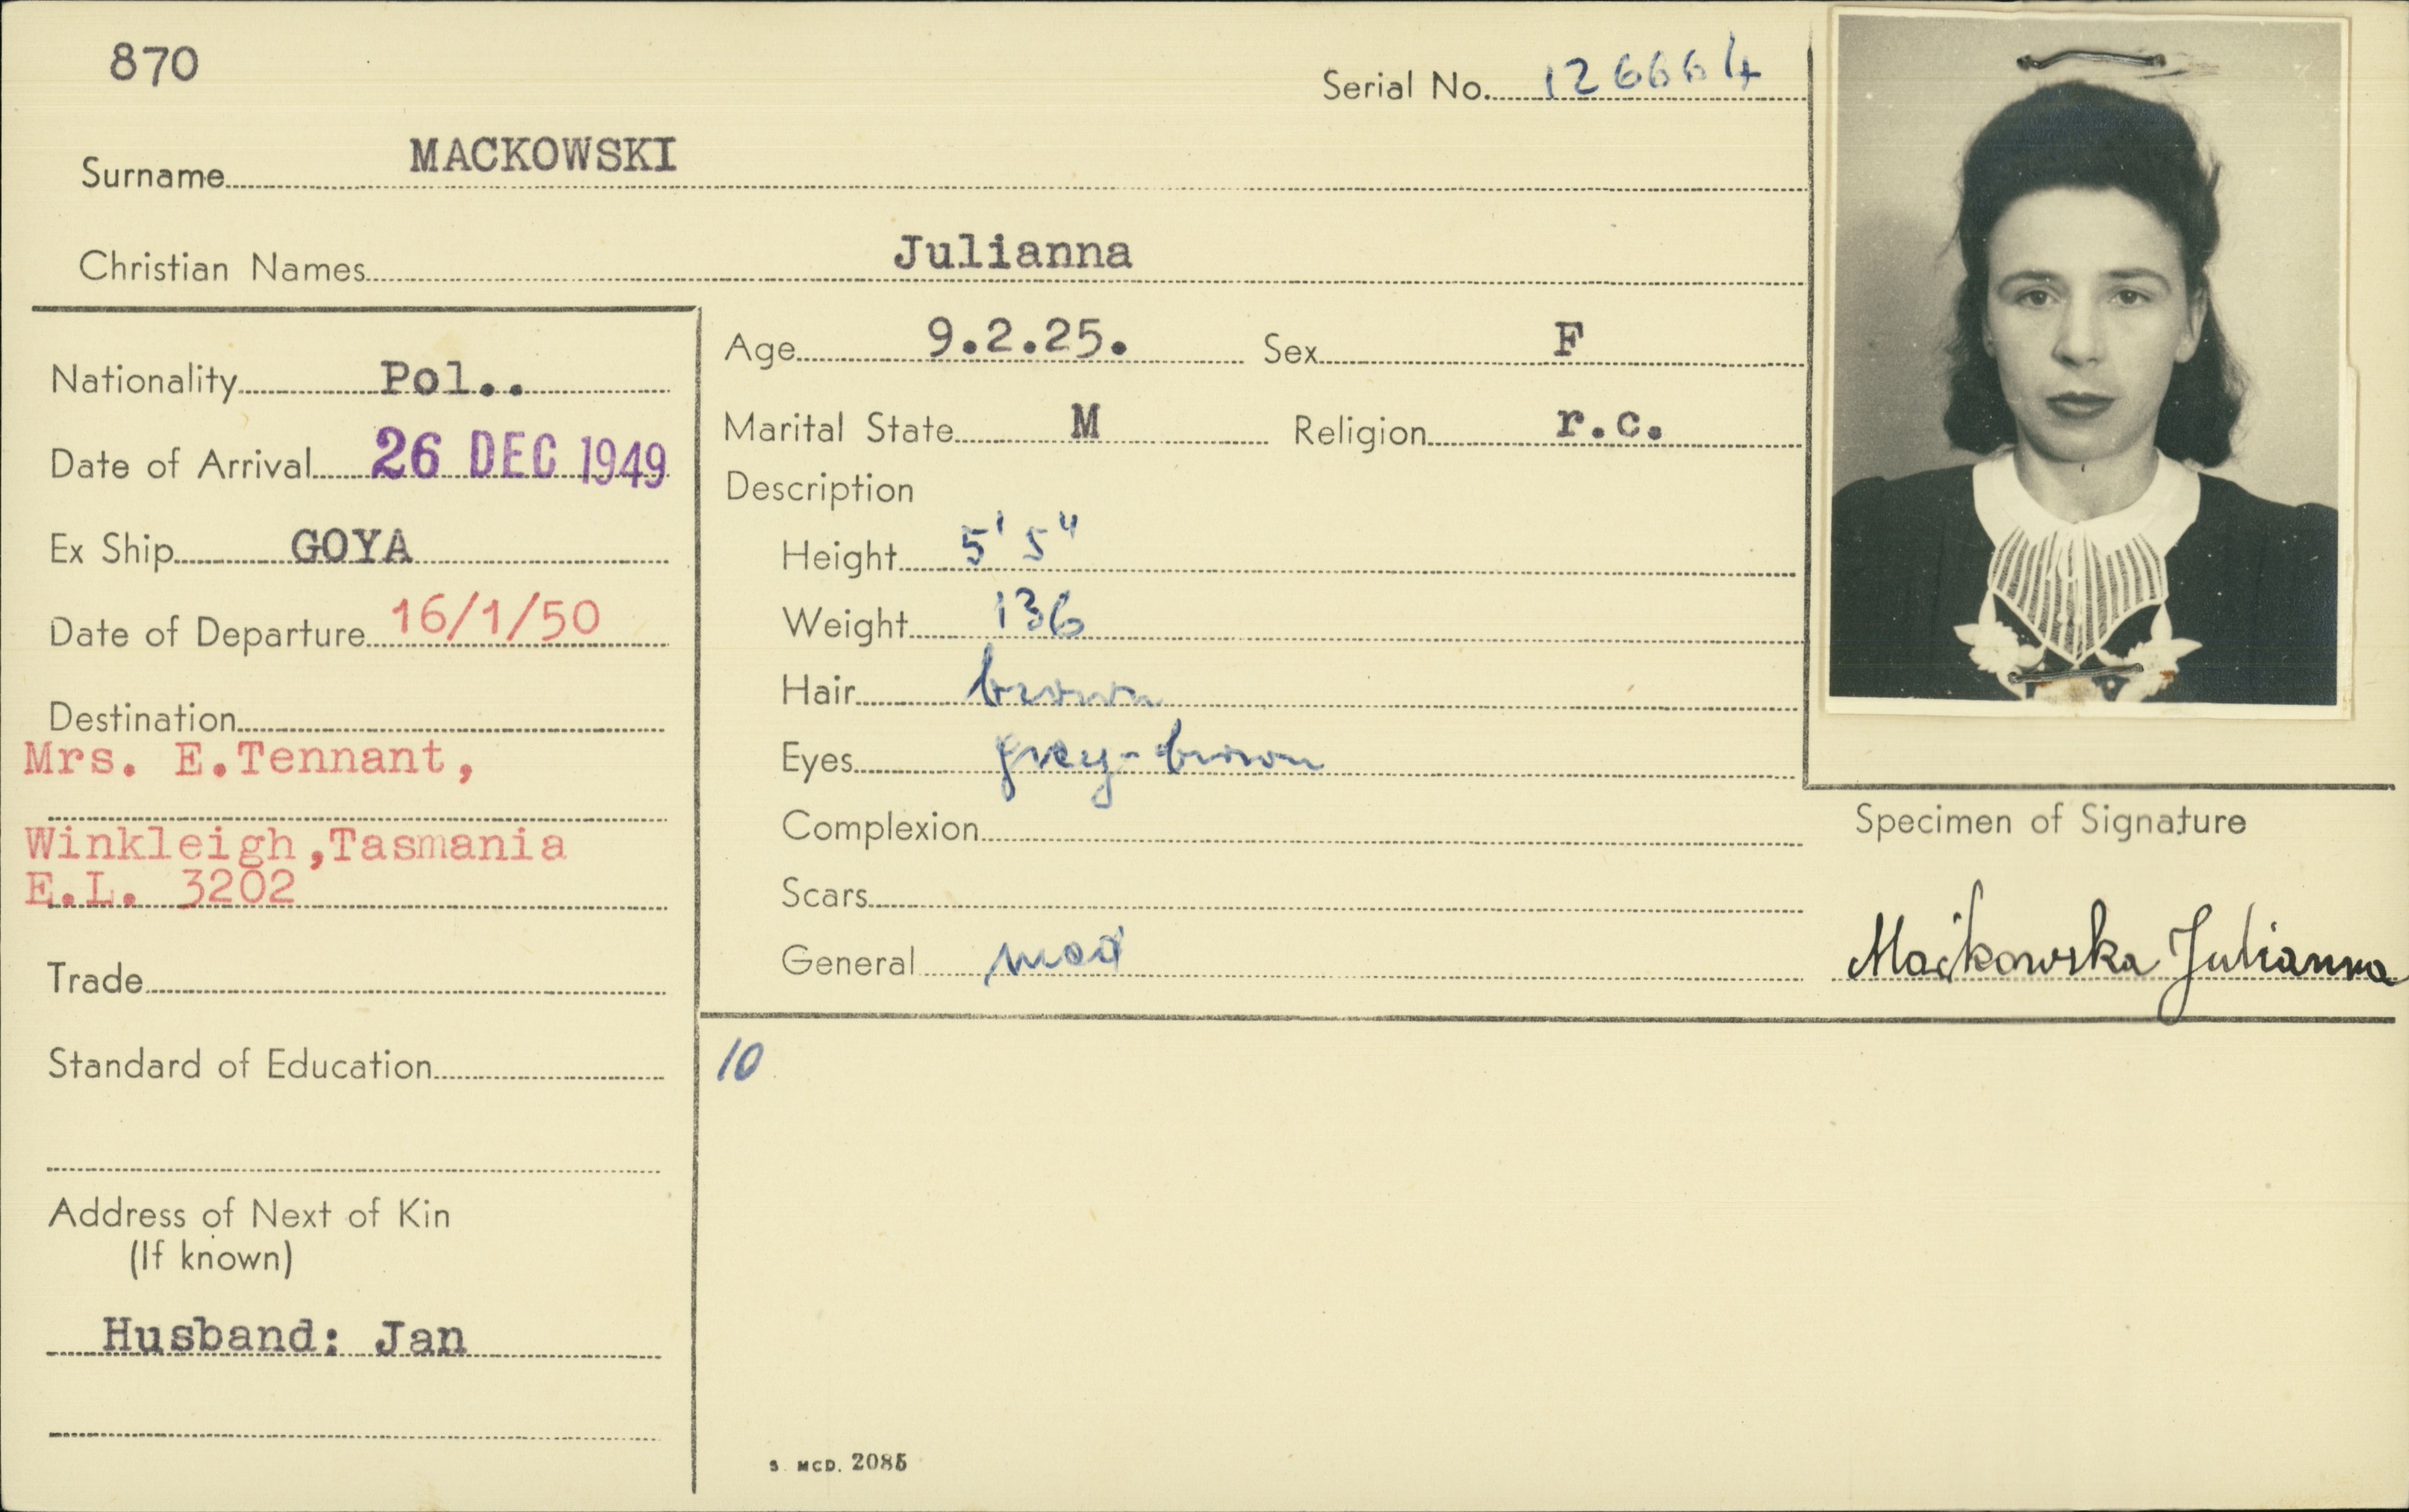 870
Serial No. 126664
Surname MACKOWSKI
Christian Names Julianna
Nationality Pol..
Date of Arrival 26 DEC 1949
Ex Ship GOYA
Date of Departure 16/1/50
Destination
Mrs. E.Tennant,
Winkleigh,Tasmania
E.L. 3202
Trade
Standard of Education
Address of Next of Kin
(If known)
Husband: Jan
Age 9.2.25. Sex F
Marital State M Religion r.c.
Description
Height 5' 5"
Weight 136
Hair brown
Eyes grey-brown
Complexion
Scars
General med
Specimen of Signature
Maćkowska Julianna
10
S. MCD. 2085